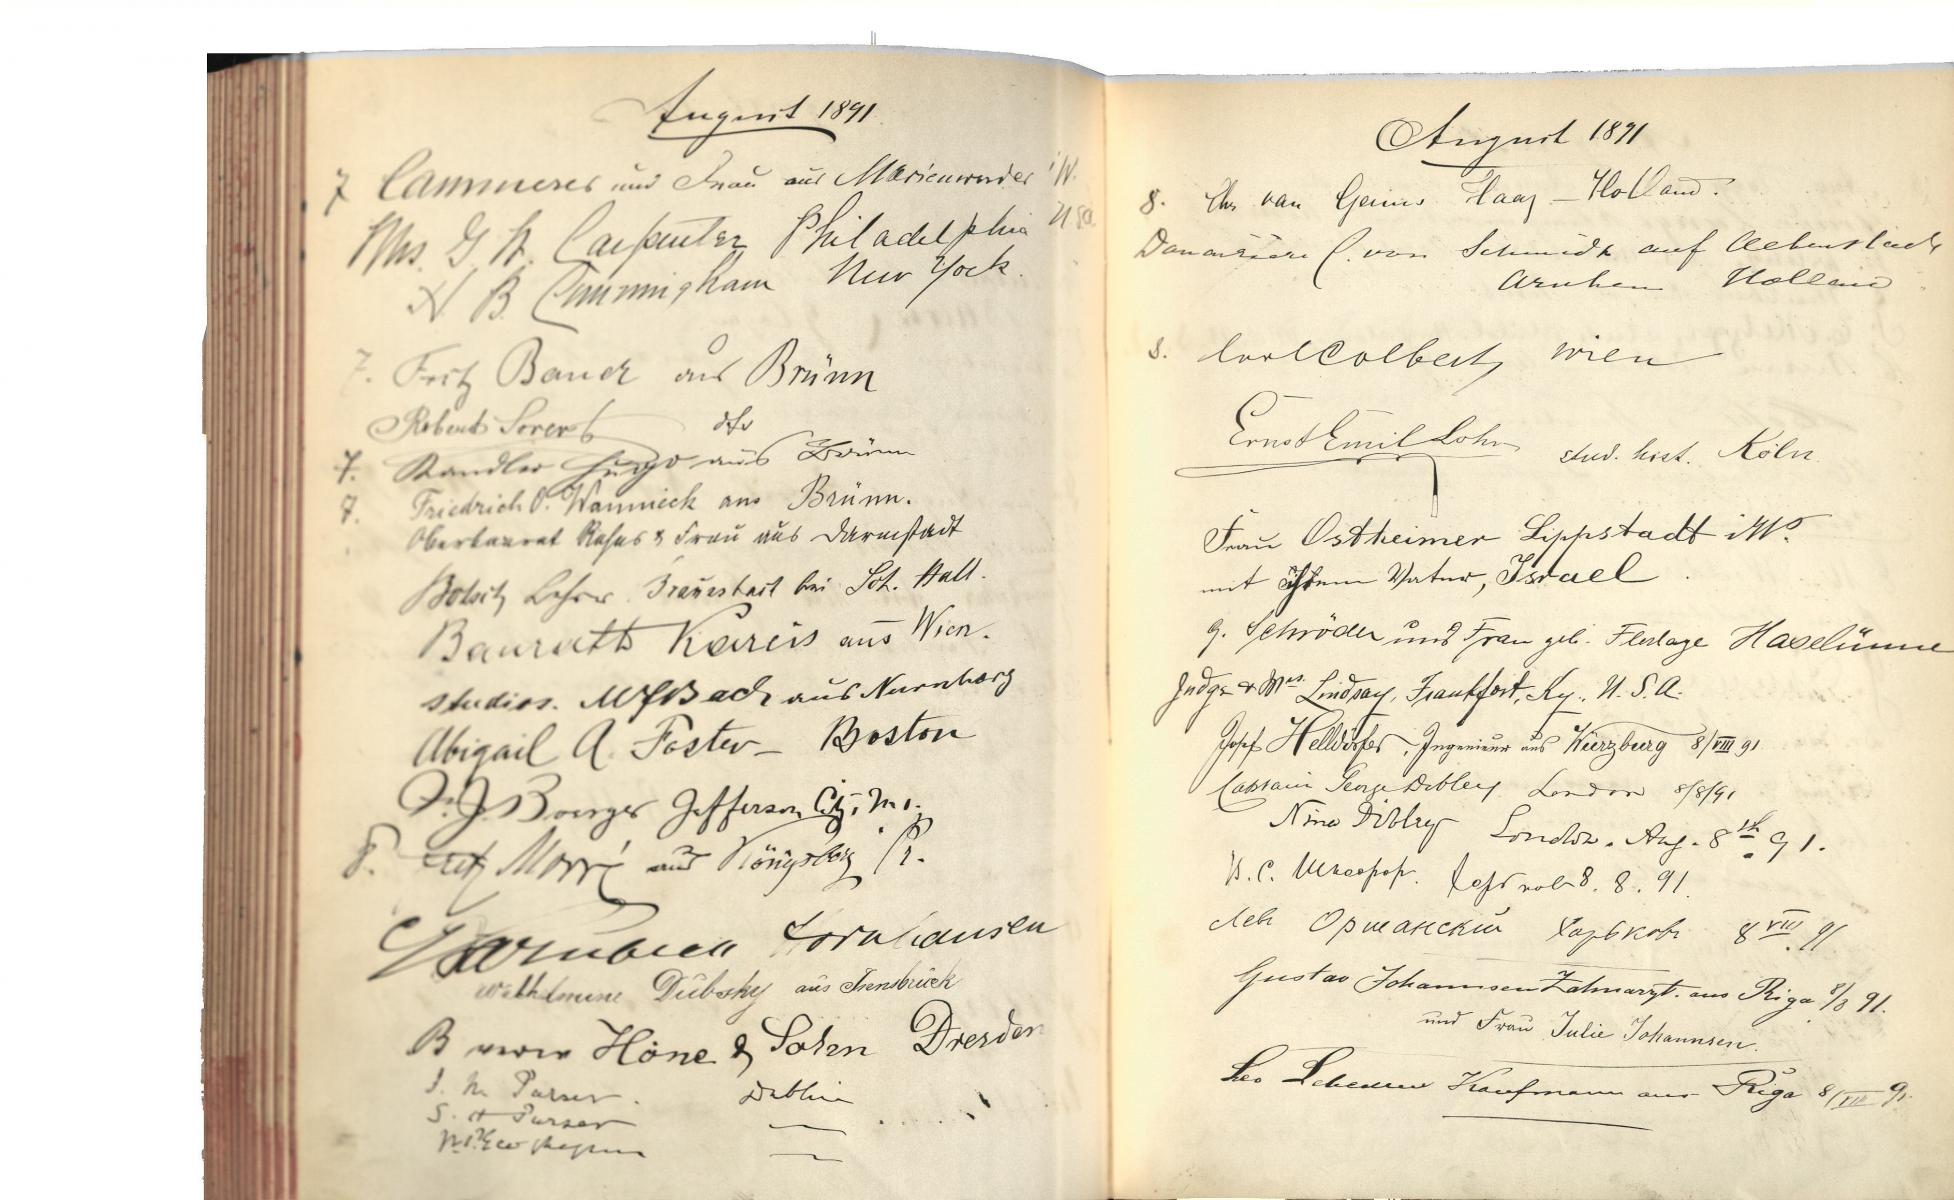 August 1891
7 Cammerer und Frau aus Marienwerder i/W.
Mrs. G. W. Carpenter Philadelphia USA.
N. B. Cunningham New York.
7. Fritz Bauer aus Brünn
Robert dto
7. Kandler Hugo aus Brünn
7. Friedrich O. Wannieck aus Brünn.
Oberbaurat & Frau aus Darmstadt
Lehrer bei Hall.
Baurath Kareis aus Wien.
studios. Bach aus Nürnberg
Abigail A. Foster – Boston
F. J. Boerger Jefferson City, Mo.
8. Fritz Morré aus Königsberg Pr.
Kornhausen
Wilhelmine Dubsky aus Innsbruck
B Höne & Sohn Dresden
Purser. Dublin
S. H Purser —
—
August 1891
8. van Haag – Holland.
C. von Schmidt auf
Arnhem Holland
8. Carl Colbert, Wien
Ernst Emil Lohn stud. hist. Köln.
Frau Ostheimer Lippstadt i/W.
mit ihrem Vater, Israel
G. Schröder und Frau geb. Flerlage Haselünne
Judge & Mrs. Lindsay, Frankfort, Ky., U. S. A.
Josef Helldörfer, Ingenieur aus Würzburg 8/VIII 91
Captain George Dibley London 8/8/91
Nina Dibley London. Aug. 8th 91.
8. 8. 91.
Левъ Оршанский Харьковъ 8 VIII 91
Gustav Johannsen Zahnarzt. aus Riga 8/8 91.
und Frau Julie Johannsen.
Leo Kaufmann aus Riga 8/VIII 91.